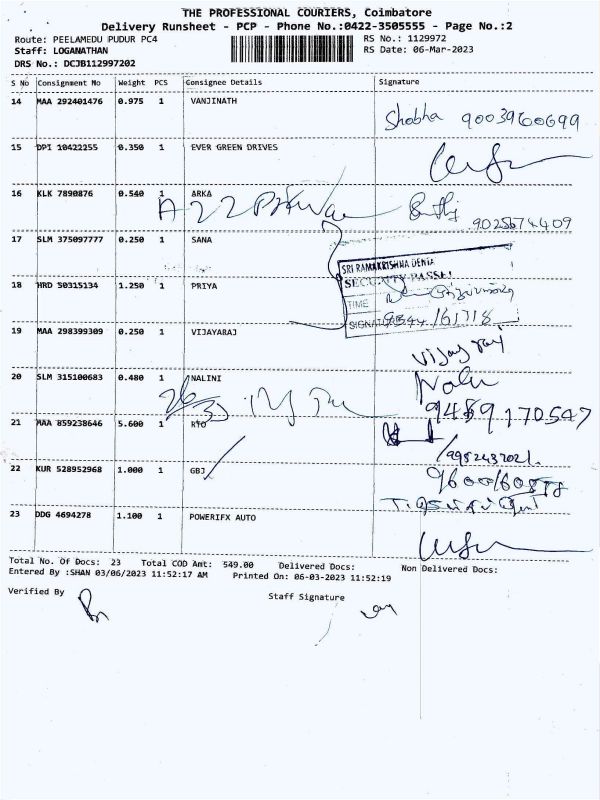 THE PROFESSIONAL COURIERS, Coimbatore
Delivery Runsheet - PCP - Phone No.:0422-3505555 - Page No.:2
Route: PEELAMEDU PUDUR PC4 RS No.: 1129972
Staff: LOGANATHAN RS Date: 06-Mar-2023
DRS No.: DCJB112997202
S No Consignment No Weight PCS Consignee Details Signature
14 MAA 292401476 0.975 1 VANJINATH
Shobha 9003960699
15 DPI 10422255 0.350 1 EVER GREEN DRIVES
16 KLK 7890876 0.540 1 ARKA
9025674409
17 SLM 375097777 0.250 1 SANA
SRI RAMAKRISHNA DENTA
SECURITY PASSE
18 HRD 50315134 1.250 1 PRIYA
TIME
SIGNAT
19 MAA 298399309 0.250 1 VIJAYARAJ
Vijay raj
20 SLM 315100683 0.480 1 NALINI
Nalini
9489170547
21 MAA 859238646 5.600 1 RTO
9952437021.
22 KUR 528952968 1.000 1 GBJ
23 DDG 4694278 1.100 1 POWERIFX AUTO
Total No. Of Docs: 23 Total COD Amt: 549.00 Delivered Docs: Non Delivered Docs:
Entered By :SHAN 03/06/2023 11:52:17 AM Printed On: 06-03-2023 11:52:19
Verified By Staff Signature